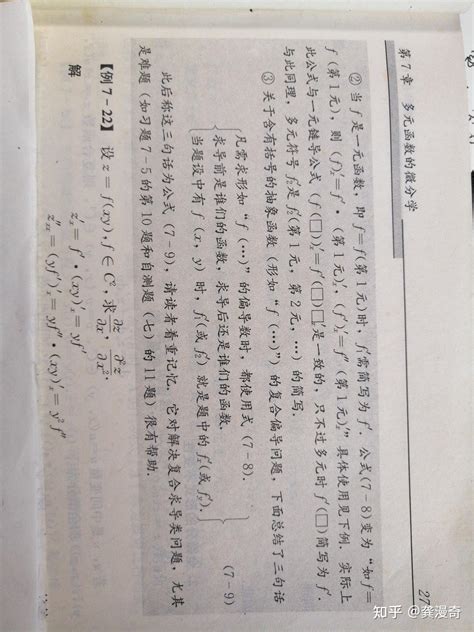 第7章 多元函数的微分学
27
② 当 f 是一元函数, 即 f=f(第1元)时, f′₁需简写为 f′. 公式(7-8)变为“如 f=
f(第1元), 则 (f)′ₓ=f′·(第1元)′ₓ, (f′)′ₓ=f″(第1元)′ₓ”具体使用见下例. 实际上
此公式与一元链导公式 (f(□))′ₓ=f′(□)□′ₓ是一致的, 只不过多元时 f′(□)简写为 f′.
与此同理, 多元符号 f′₂是 f′₂(第1元, 第2元, …)的简写.
③ 关于含有括号的抽象函数 (形如“f(…)”) 的复合偏导问题, 下面总结了三句话
凡需求形如“f(…)”的偏导数时, 都使用式 (7-8).
求导前是谁们的函数, 求导后还是谁们的函数.
当题设中有 f(x, y) 时, f′₁(或 f′₂) 就是题中的 f′ₓ(或 f′ᵧ).
(7-9)
此后称这三句话为公式 (7-9), 请读者着重记忆, 它对解决复合求导类问题, 尤其
是难题 (如习题 7-5 的第 10 题和自测题 (七) 的 11 题) 很有帮助.
【例 7-22】 设 z=f(xy), f∈C², 求 ∂z/∂x, ∂²z/∂x².
解 z′ₓ=f′·(xy)′ₓ=yf′
z″ₓₓ=(yf′)′ₓ=yf″·(xy)′ₓ=y²f″
知乎 @龚漫奇